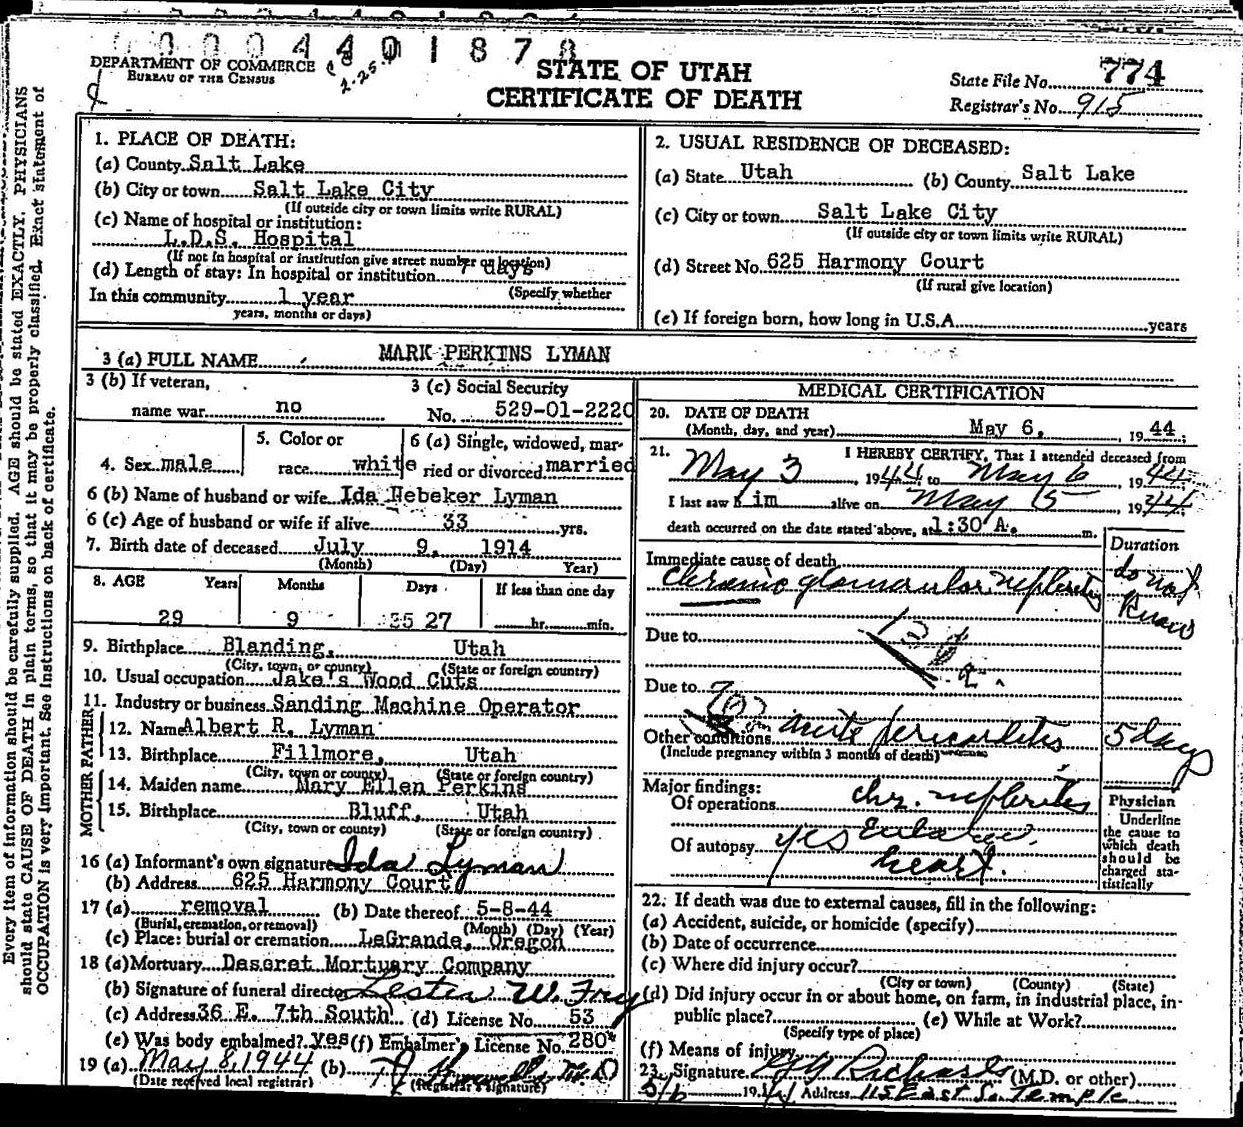 00004401878
DEPARTMENT OF COMMERCE
BUREAU OF THE CENSUS
2-25
STATE OF UTAH
CERTIFICATE OF DEATH
State File No. 774
Registrar's No. 915
Every item of information should be carefully supplied. AGE should be stated EXACTLY. PHYSICIANS
should state CAUSE OF DEATH in plain terms, so that it may be properly classified. Exact statement of
OCCUPATION is very important. See instructions on back of certificate.
1. PLACE OF DEATH:
(a) County Salt Lake
(b) City or town Salt Lake City
(If outside city or town limits write RURAL)
(c) Name of hospital or institution:
L.D.S. Hospital
(If not in hospital or institution give street number or location)
(d) Length of stay: In hospital or institution 7 days
(Specify whether
In this community 1 year
years, months or days)
2. USUAL RESIDENCE OF DECEASED:
(a) State Utah (b) County Salt Lake
(c) City or town Salt Lake City
(If outside city or town limits write RURAL)
(d) Street No. 625 Harmony Court
(If rural give location)
(e) If foreign born, how long in U.S.A. years
3 (a) FULL NAME MARK PERKINS LYMAN
3 (b) If veteran,
name war no
3 (c) Social Security
No. 529-01-2220
4. Sex male
5. Color or
race white
6 (a) Single, widowed, mar-
ried or divorced married
6 (b) Name of husband or wife Ida Nebeker Lyman
6 (c) Age of husband or wife if alive 33 yrs.
7. Birth date of deceased July 9, 1914
(Month) (Day) Year)
8. AGE Years Months Days If less than one day
29 9 27 hr. min.
9. Birthplace Blanding, Utah
(City, town, or county) (State or foreign country)
10. Usual occupation Jake's Wood Cuts
11. Industry or business Sanding Machine Operator
FATHER
12. Name Albert R. Lyman
13. Birthplace Fillmore, Utah
(City, town or county) (State or foreign country)
MOTHER
14. Maiden name Mary Ellen Perkins
15. Birthplace Bluff, Utah
(City, town or county) (State or foreign country)
16 (a) Informant's own signature Ida Lyman
(b) Address 625 Harmony Court
17 (a) removal (b) Date thereof 5-8-44
(Burial, cremation, or removal) (Month) (Day) (Year)
(c) Place: burial or cremation LaGrande, Oregon
18 (a) Mortuary Deseret Mortuary Company
(b) Signature of funeral director Lester W. Fry
(c) Address 36 E. 7th South (d) License No. 53
(e) Was body embalmed? yes (f) Embalmer's License No. 280
19 (a) May 8, 1944 (b) M D
(Date received local registrar) (Registrar's signature)
MEDICAL CERTIFICATION
20. DATE OF DEATH
(Month, day, and year) May 6, 1944
21. I HEREBY CERTIFY, That I attended deceased from
May 3, 1944 to May 6 1944
I last saw him alive on May 5 1944
death occurred on the date stated above, at 1:30 A. m.
Duration
Immediate cause of death
chronic glomerular nephritis do not
know
Due to
Due to
Other conditions acute pericarditis 5 days
(Include pregnancy within 3 months of death)
Major findings:
Of operations chr. nephritis
Of autopsy yes Enlarge
heart.
Physician
Underline
the cause to
which death
should be
charged sta-
tistically
22. If death was due to external causes, fill in the following:
(a) Accident, suicide, or homicide (specify)
(b) Date of occurrence
(c) Where did injury occur?
(City or town) (County) (State)
(d) Did injury occur in or about home, on farm, in industrial place, in
public place? (e) While at Work?
(Specify type of place)
(f) Means of injury
23. Signature GG Richards (M.D. or other)
5/6 1944 Address 115 East So. Temple